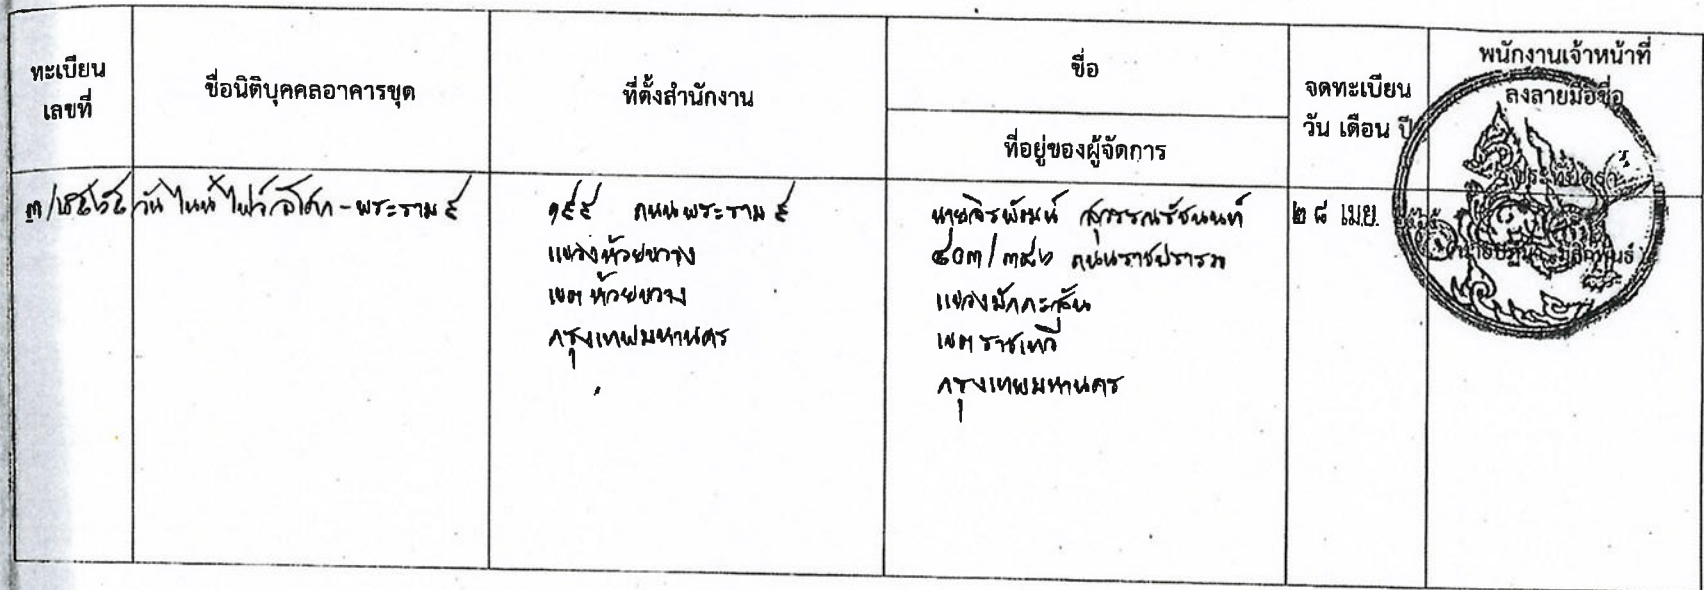 ทะเบียน
เลขที่
ชื่อนิติบุคคลอาคารชุด
ที่ตั้งสำนักงาน
ชื่อ
ที่อยู่ของผู้จัดการ
จดทะเบียน
วัน เดือน ปี
พนักงานเจ้าหน้าที่
ลงลายมือชื่อ
วัน ไนน์ ไฟว์ อโศก - พระราม ๙
๑๙๕ ถนนพระราม ๙
แขวงห้วยขวาง
เขตห้วยขวาง
กรุงเทพมหานคร
นายจิรพัฒน์ สุวรรณรัชนนท์
ถนนราชปรารภ
แขวงมักกะสัน
เขตราชเทวี
กรุงเทพมหานคร
๒๘ เม.ย.
ประทับตรา